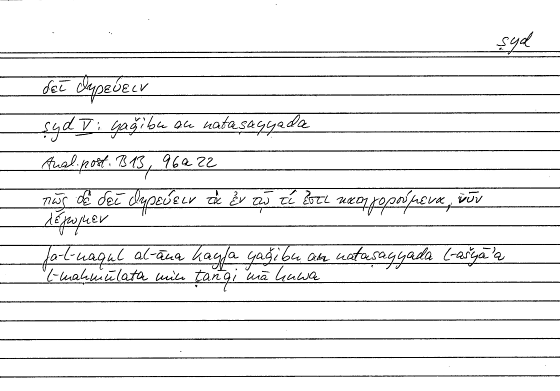 ṣyd
δεῖ θηρεύειν
ṣyd V: yaǧibu an nataṣayyada
Anal. post. B 13, 96a22
πῶς δὲ δεῖ θηρεύειν τὰ ἐν τῷ τί ἐστι κατηγορούμενα, νῦν
λέγωμεν
fa-l-naqul al-āna kayfa yaǧibu an nataṣayyada l-ašyāʾa
l-maḥmūlata min ṭarīqi mā huwa